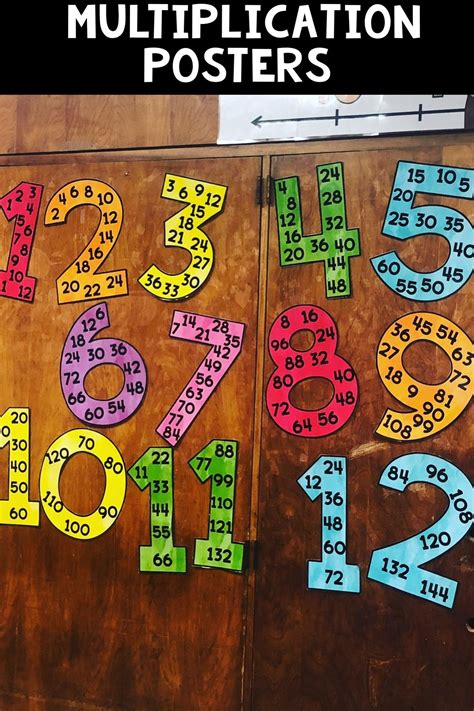 MULTIPLICATION
POSTERS
1 2 3
4
5
6
7
8
9
10
11 12
4 6 8 10
2 12
14
16
18
20 22 24
3 6 9 12
15
18
21
24
27
30
33 36
4 24
8 28
12 32
16 20 36 40
44
48
15 10 5
20
25 30 35 40
45
50
60 55
12 6
18
24 30 36
72 42
66 48
60 54
7 14 21 28
35
42
49
56
63
70
77
84
8 16 24
96 32
88 40
80 48
72 64 56
36 45 54
27 63
18 9 72
81
90
99
108
10
20
30
40
50
60 70 80
120 90
110 100
11 22
33
44
55
66
77 88
99
110
121
132
12 24
36
48
60
72
84 96
108
120
132 144